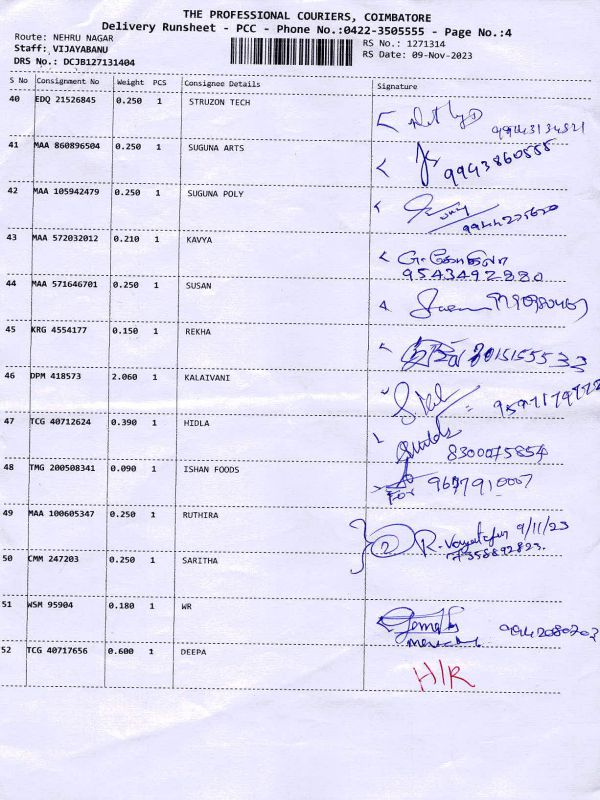 THE PROFESSIONAL COURIERS, COIMBATORE
Delivery Runsheet - PCC - Phone No.:0422-3505555 - Page No.:4
Route: NEHRU NAGAR
Staff: VIJAYABANU
DRS No.: DCJB127131404
RS No.: 1271314
RS Date: 09-Nov-2023
S No Consignment No Weight PCS Consignee Details Signature
40 EDQ 21526845 0.250 1 STRUZON TECH
41 MAA 860896504 0.250 1 SUGUNA ARTS 9943860555
42 MAA 105942479 0.250 1 SUGUNA POLY 9944225620
43 MAA 572032012 0.210 1 KAVYA
9543492880
44 MAA 571646701 0.250 1 SUSAN
45 KRG 4554177 0.150 1 REKHA
46 DPM 418573 2.060 1 KALAIVANI
47 TCG 40712624 0.390 1 HIDLA
8300075854
48 TMG 200508341 0.090 1 ISHAN FOODS
For
49 MAA 100605347 0.250 1 RUTHIRA 2 9/11/23
7358892823.
50 CMM 247203 0.250 1 SARITHA
51 WSM 95904 0.180 1 WR 9942080203
52 TCG 40717656 0.600 1 DEEPA H/R